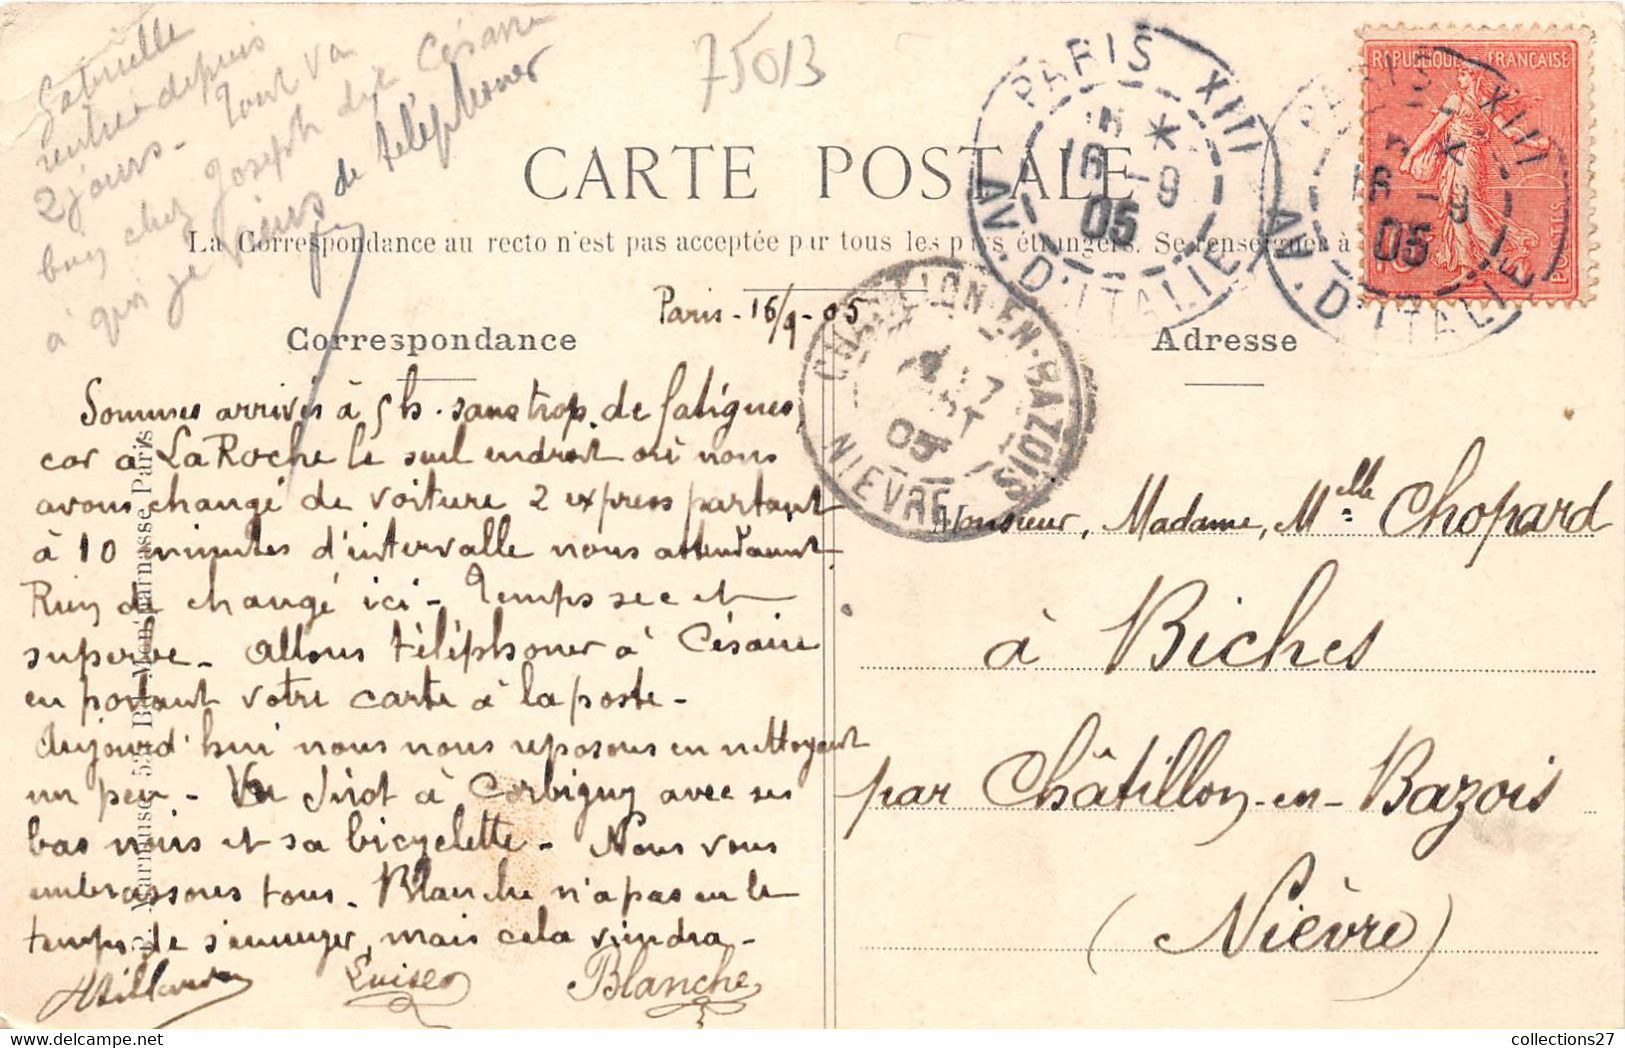 Gabrielle
rentrée depuis
2 jours - Tout va
bien chez Joseph dit Césaire
à qui je viens de téléphoner
75013
CARTE POSTALE
La Correspondance au recto n'est pas acceptée par tous les pays étrangers. Se renseigner à
PARIS XIII
AV. D'ITALIE
16 -9
05
PARIS XIII
AV. D'ITALIE
16 -9
05
REPUBLIQUE FRANÇAISE
POSTES
10
Paris - 16/9 - 05
CHATILLON-EN-BAZOIS
NIEVRE
05
Correspondance
Adresse
Sommes arrivés à 5h. sans trop de fatigues,
car à La Roche le seul endroit où nous
avons changé de voiture 2 express partant
à 10 minutes d'intervalle nous attendaient
Rien de changé ici - Temps sec et
superbe - Allons téléphoner à Césaire
en portant votre carte à la poste -
Aujourd'hui nous nous reposons en nettoyant
un peu - Vu Jirot à Corbigny avec ses
bas noirs et sa bicyclette - Nous vous
embrassons tous - Blanche n'a pas eu le
temps de s'ennuyer, mais cela viendra -
Louise Blanche
Marmuse, 53, Bd Montparnasse, Paris
Monsieur, Madame, Melle Chopard
à Biches
par Châtillon-en-Bazois
(Nièvre)
collections27